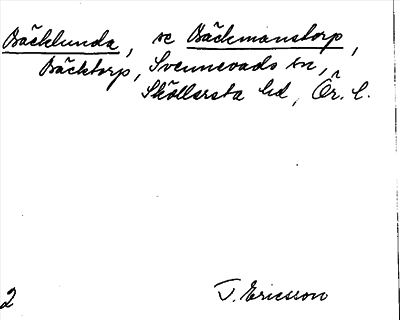 Bäcklunda, se Bäckmanstorp,
Bäcktorp, Svennevads sn,
Sköllersta hd, Ör. l.
2
T. Ericsson